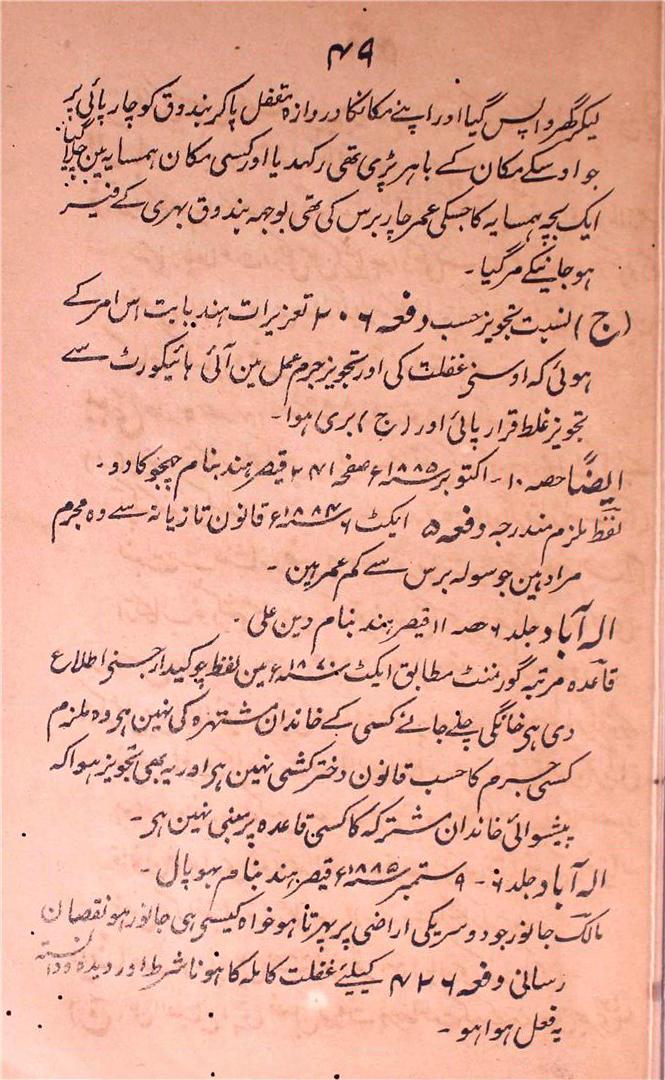 ۴۹
لیکر گھر واپس گیا اور اپنے مکانکا دروازہ مقفل پاکر بندوق کو چارپائی پر
جو اوسکے مکان کے باہر پڑی تھی رکھدیا اور کسی مکان ہمسایہ مین چلا گیا
ایک بچہ ہمسایہ کا جسکی عمر چار برس کی تھی بوجہہ بندوق بھری کے فیر
ہو جانیکے مر گیا۔
(ج) نسبت تجویز حسب دفعہ ۳۰۶ تعزیرات ہند بابت اس امر کے
ہوئی کہ اوسنی غفلت کی اور تجویز جرم عمل مین آئی ہائیکورٹ سے
تجویز غلط قرار پائی اور (ج) بری ہوا۔
ایضًا حصہ ۱۰۔ اکتوبر ۱۸۸۵ء صفحہ ۲۷۱ قیصر ہند بنام جھجو کا دو۔
لفظ ملزم مندرجہ دفعہ ۵ ایکٹ ۶ ۱۸۶۴ء قانون تازیانہ سے وہ مجرم
مراد ہین جو سولہ برس سے کم عمر ہین۔
الہ آباد جلد ۶ حصہ ۱۱ قیصر ہند بنام دین علی۔
قاعدہ مرتبہ گورنمنٹ مطابق ایکٹ ۱۸۷۰ء مین لفظ چوکیدار جسنی اطلاع
دی ہی خانگی چلے جانے کسی کے خاندان مشتہرہ کی نہین ہی وہ ملزم
کسی جرم کا حسب قانون دختر کشی نہین ہی اور یہ بھی تجویز ہوا کہ
پیشوائی خاندان مشترکہ کا کسی قاعدہ پر مبنی نہین ہی۔
الہ آباد جلد ۶۔ ۹ ستمبر ۱۸۸۵ء قیصر ہند بنام بھوپال۔
مالک جانور جو دوسریکی اراضی پر پھرتا ہو خواہ کیسی ہی جانور ہو نقصان
رسانی دفعہ ۴۲۶ کیلئے غفلت کاملہ کا ہونا شرط اور دیدہ و دانستہ
یہ فعل ہوا ہو۔